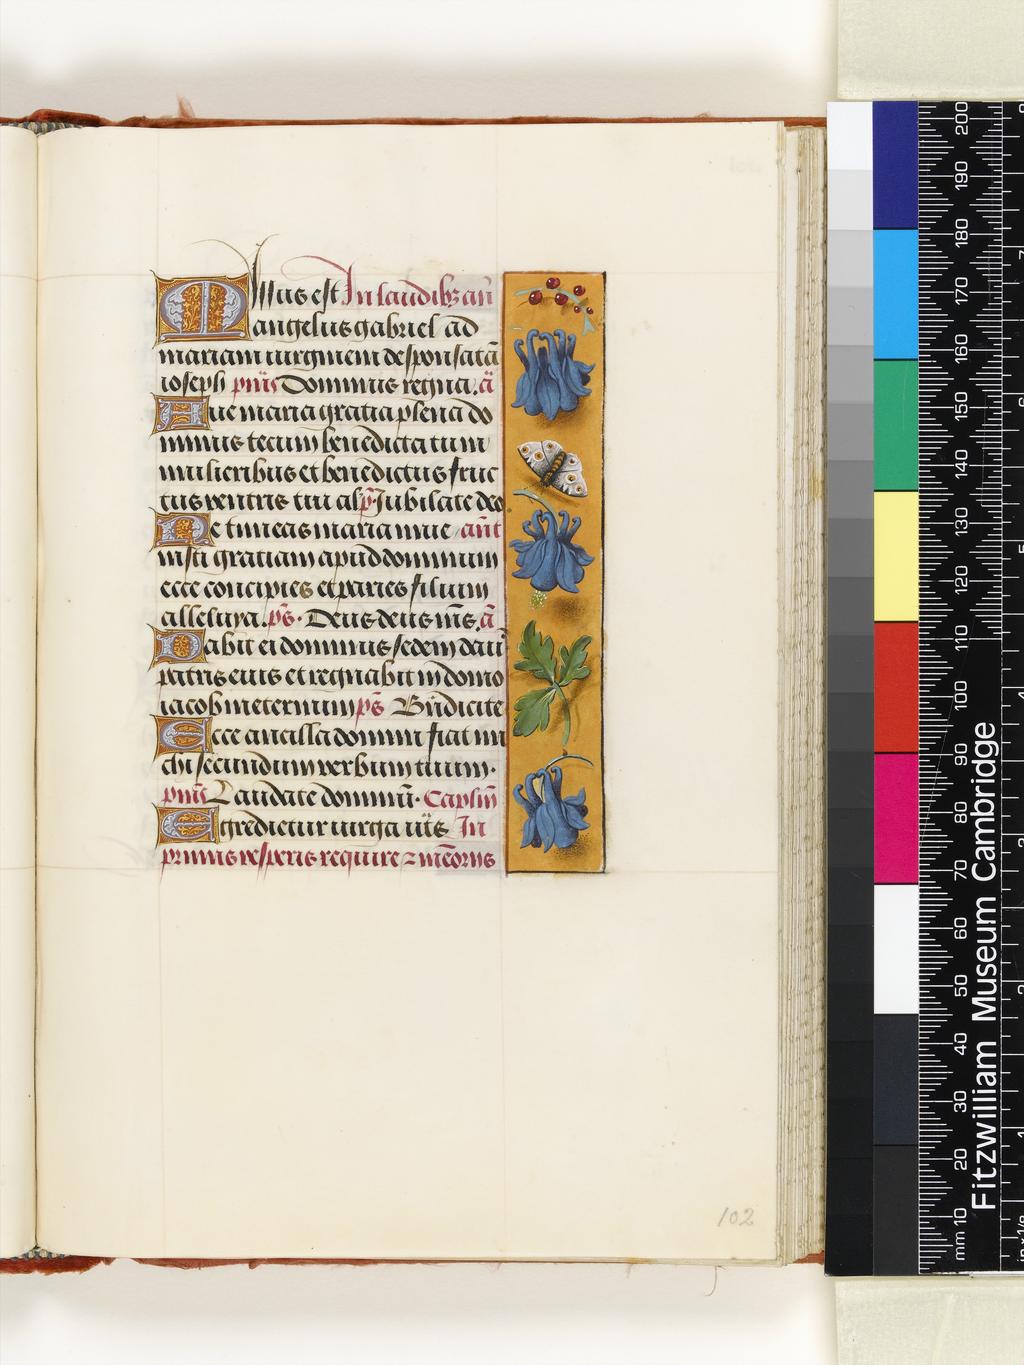 Missus est In laudibꝫ an̄
angelus gabriel ad
mariam uirginem desponsatā
ioseph pm̄s Dominus regna. ā
Aue maria gratia plena do
minus tecum benedicta tu in
mulieribus et benedictus fruc
tus ventris tui al̄ p̄s Jubilate deo
Ne timeas maria inue ant
nisti gratiam apud dominum
ecce concipies et paries filium
alleluya. p̄s. Deus deus m̄s. ā
Dabit ei dominus sedem daui
patris eius et regnabit in domo
iacob in eternum p̄s Bn̄dicite
Ecce ancilla domini fiat mi
chi secundum verbum tuum.
pm̄s Laudate dominū. Caplm̄
Egredietur uirga ut s̄ In
primis vesperis require ⁊ meōrīs
102
Fitzwilliam Museum Cambridge
mm 10 20 30 40 50 60 70 80 90 100 110 120 130 140 150 160 170 180 190 200